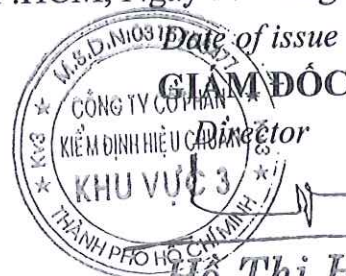 Date of issue
GIÁM ĐỐC
Director
M.S.D.N:031
CÔNG TY CỔ PHẦN
KIỂM ĐỊNH HIỆU CHUẨN
KHU VỰC 3
KV3
THÀNH PHỐ HỒ CHÍ MINH
Hồ Thị